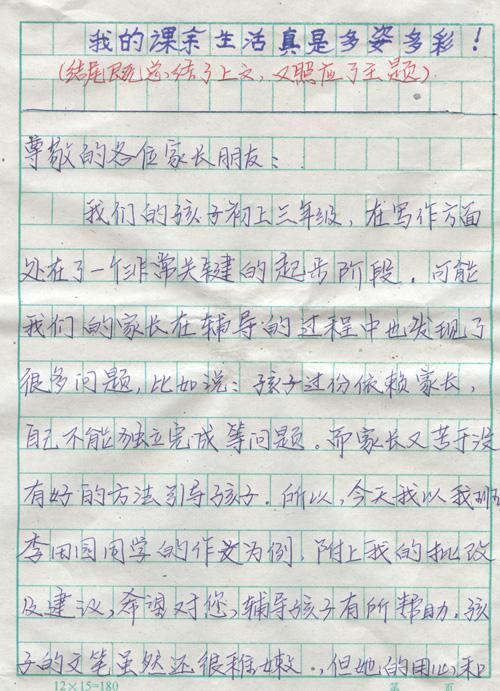 我的课余生活真是多姿多彩！
(结尾既总结了上文，又照应了主题)
尊敬的各位家长朋友：
我们的孩子初上三年级，在写作方面
处在了一个非常关键的起步阶段。可能
我们的家长在辅导的过程中也发现了
很多问题，比如说：孩子过份依赖家长，
自己不能独立完成等问题。而家长又苦于没
有好的方法引导孩子。所以，今天我以我班
李田园同学的作文为例，附上我的批改
及建议，希望对您，辅导孩子有所帮助。孩
子的文笔虽然还很稚嫩，但她的用心和
12×15=180
第 页